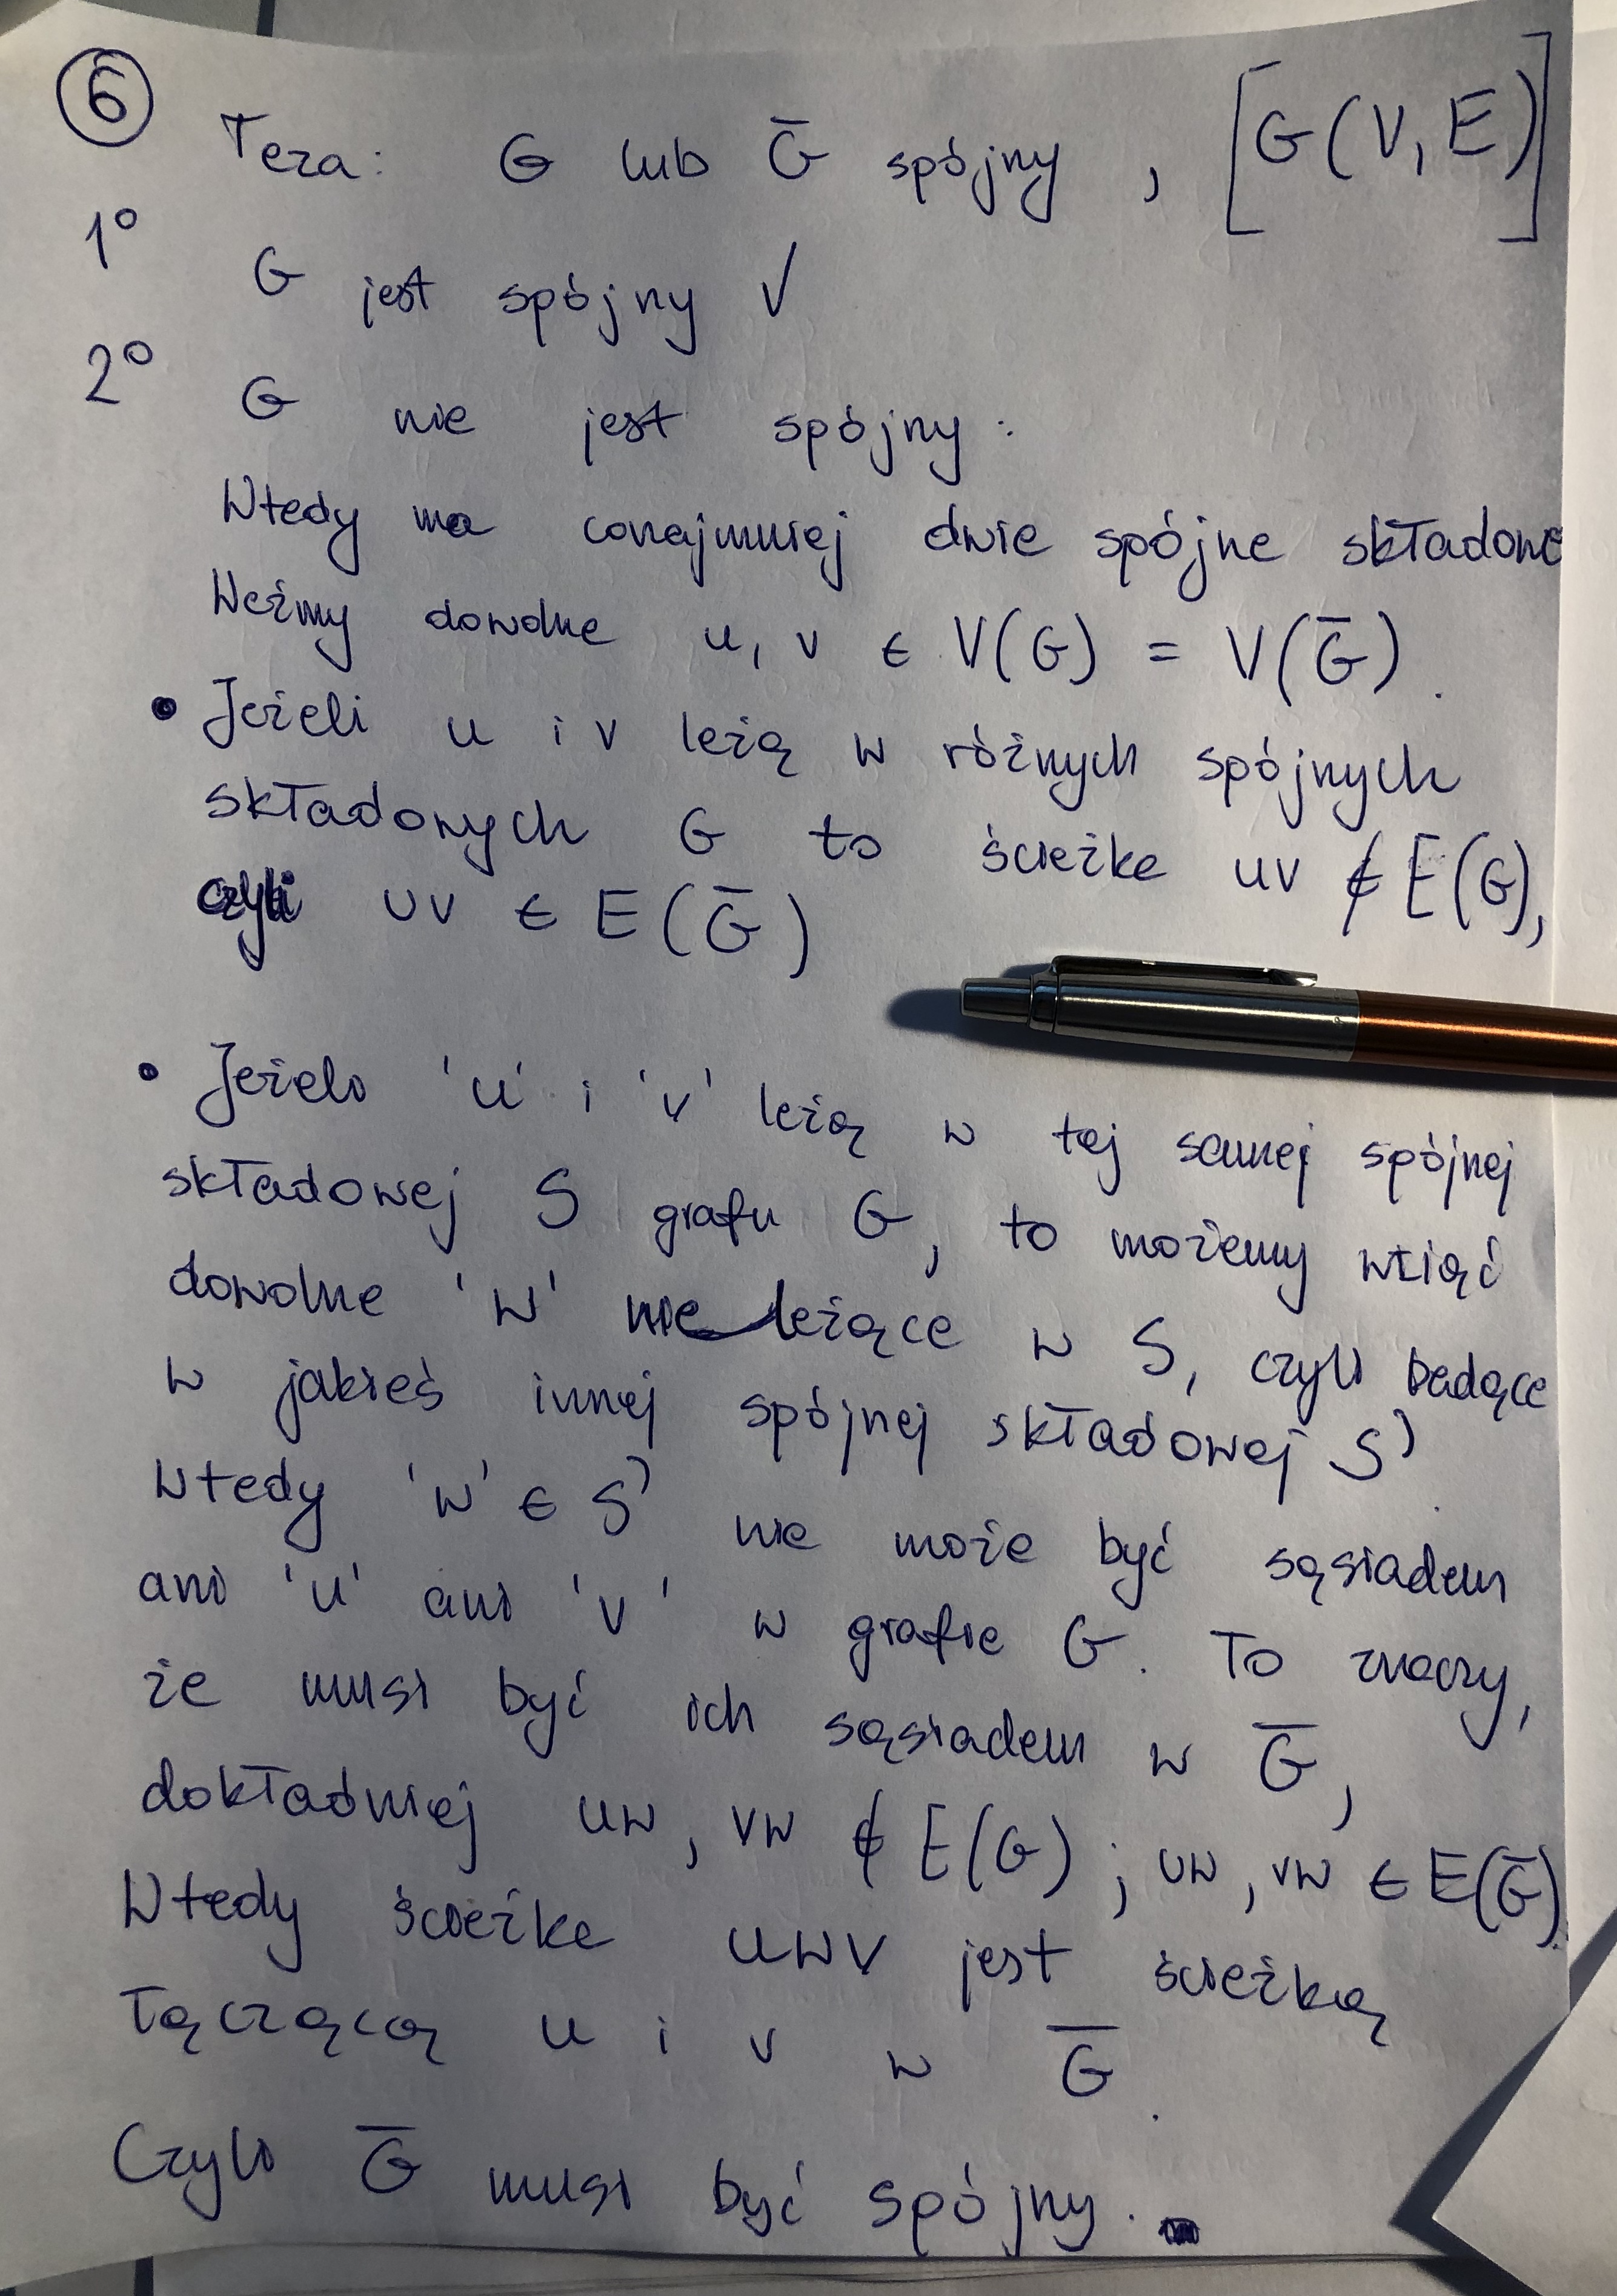 6
Teza: G lub G̅ spójny , [G(V, E)]
1° G jest spójny √
2° G nie jest spójny :
Wtedy ma conajmniej dwie spójne składowe
Weźmy dowolne u, v ∈ V(G) = V(G̅).
• Jeżeli u i v leżą w różnych spójnych
składowych G to ścieżka uv ∉ E(G),
czyli uv ∈ E(G̅)
• Jeżeli 'u' i 'v' leżą w tej samej spójnej
składowej S grafu G, to możemy wziąć
dowolne 'w' nie leżące w S, czyli będące
w jakieś innej spójnej składowej S'.
Wtedy 'w' ∈ S' nie może być sąsiadem
ani 'u' ani 'v' w grafie G. To znaczy,
że musi być ich sąsiadem w G̅,
dokładniej uw, vw ∉ E(G) ; uw, vw ∈ E(G̅).
Wtedy ścieżka uwv jest ścieżką
łączącą u i v w G̅.
Czyli G̅ musi być spójny.